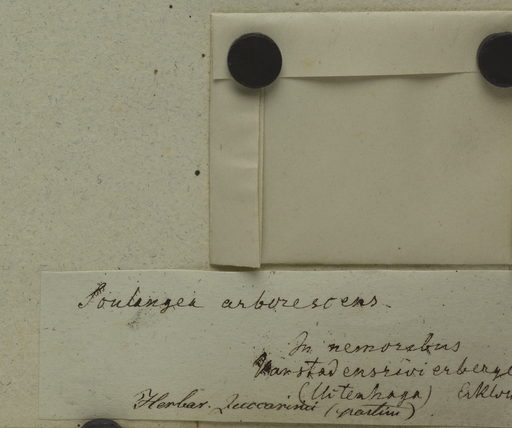 Poulangea arborescens.
In nemoribus
Vanstadensrivierberge
(Uitenhaga) Erklon
Herbar. Zuccarinii (partim)